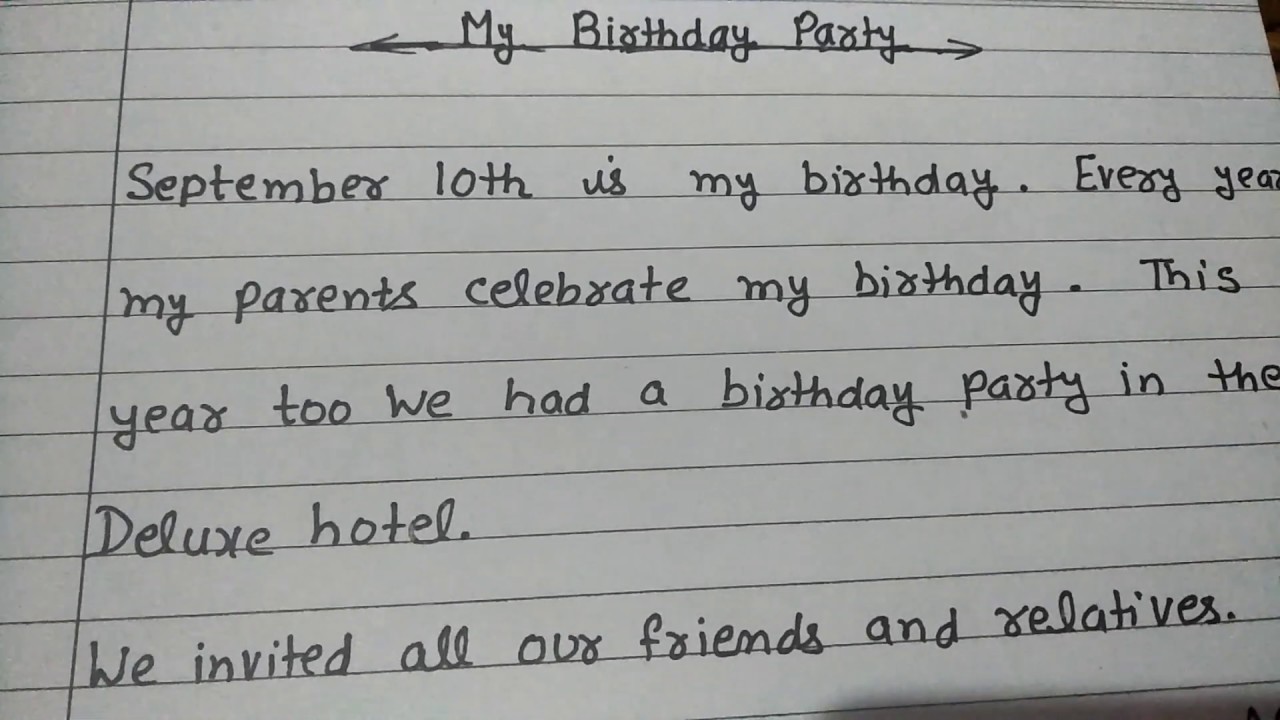 My Birthday Party
September 10th is my birthday. Every year
my parents celebrate my birthday. This
year too We had a birthday party in the
Deluxe hotel.
We invited all our friends and relatives.